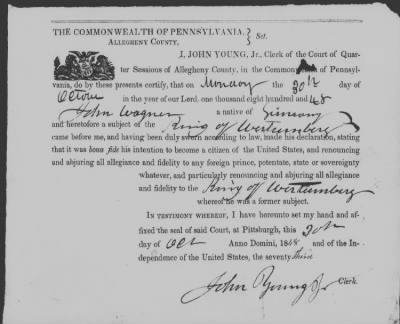 THE COMMONWEALTH OF PENNSYLVANIA,
ALLEGHENY COUNTY, } Sct.
I, JOHN YOUNG, Jr., Clerk of the Court of Quar-
ter Sessions of Allegheny County, in the Common of Pennsyl-
vania, do by these presents certify, that on Monday the 30th day of
October in the year of our Lord, one thousand eight hundred and 48
John Wagner a native of Germany
and heretofore a subject of the King of Wertemberg
came before me, and having been duly sworn according to law, made his declaration, stating
that it was bona fide his intention to become a citizen of the United States, and renouncing
and abjuring all allegiance and fidelity to any foreign prince, potentate, state or sovereignty
whatever, and particularly renouncing and abjuring all allegiance
and fidelity to the King of Wertemberg
whereof he was a former subject.
IN TESTIMONY WHEREOF, I have hereunto set my hand and af-
fixed the seal of said Court, at Pittsburgh, this 30th
day of Oct Anno Domini, 1848 and of the In-
dependence of the United States, the seventy third
John Young Jr Clerk.